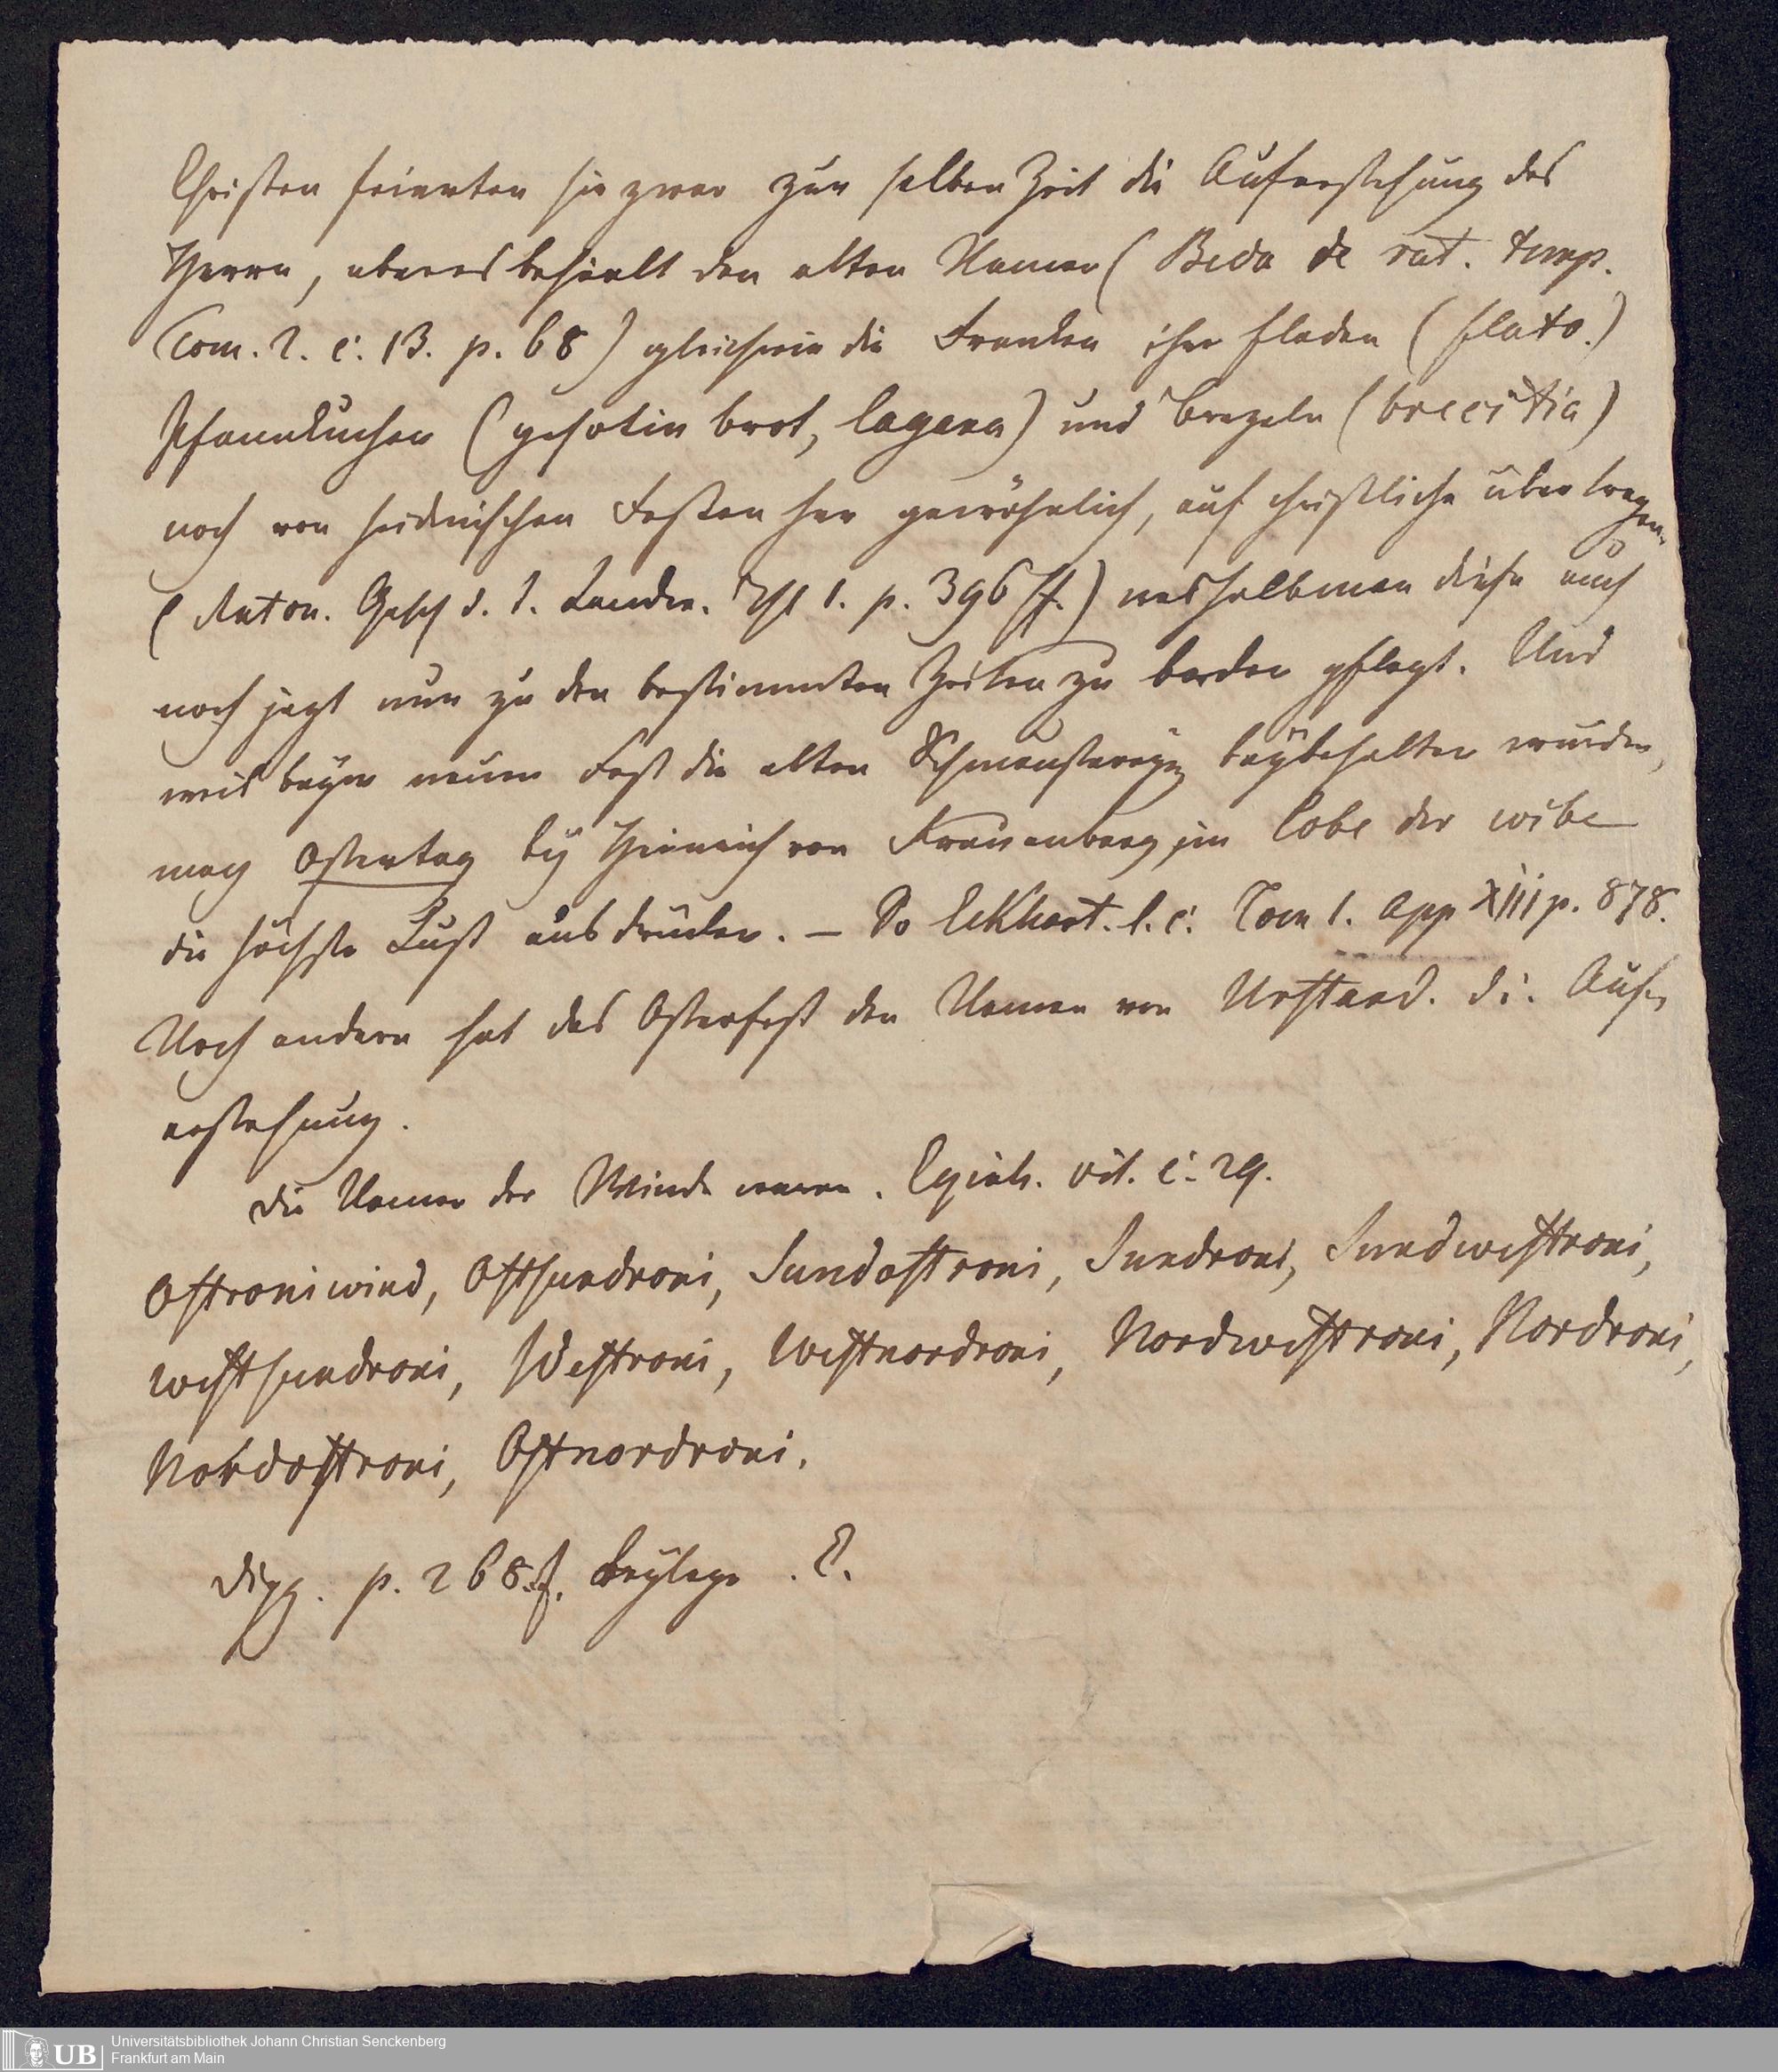 Christen feierten sie zwar zur selben Zeit die Auferstehung des
Herrn, aber es behielt den alten Namen (Beda de rat. temp.
Tom. 2. c. 13. p. 68) gleichwie die Franken ihre fladen (flato.)
Pfannkuchen (gesotin brot, lagana) und brezeln (breeitia)
noch von heidnischen Festen her gewöhnlich, auf christliche übertragen.
(Anton. Gesch d. t. Landw. Thl 1. p. 396 ff.) weshalb man diese auch
noch jezt nur zu den bestimmten Zeiten zu backen pflegt. Und
weil beym neuen Fest die alten Schmausereyen beybehalten wurden,
mag Ostertag by Heinrich von Frauenberg im lobe der wibe
die höchste Lust ausdrücken. – So Eckhart. l. c. Tom 1. App XIII p. 878.
Nach andern hat das Osterfest den Namen von Urstand. d i. Auf-
erstehung.
Die Namen der Winde waren. Eginh. vit. c. 29.
Ostroniwind, Ostsundroni, Sundostroni, Sundroni, Sundwestroni,
westsundroni, Westroni, Westnordroni, Nordwestroni, Nordroni,
Nordostroni, Ostnordroni.
p. 268. f. Beylage . E.
Universitätsbibliothek Johann Christian Senckenberg
UB Frankfurt am Main